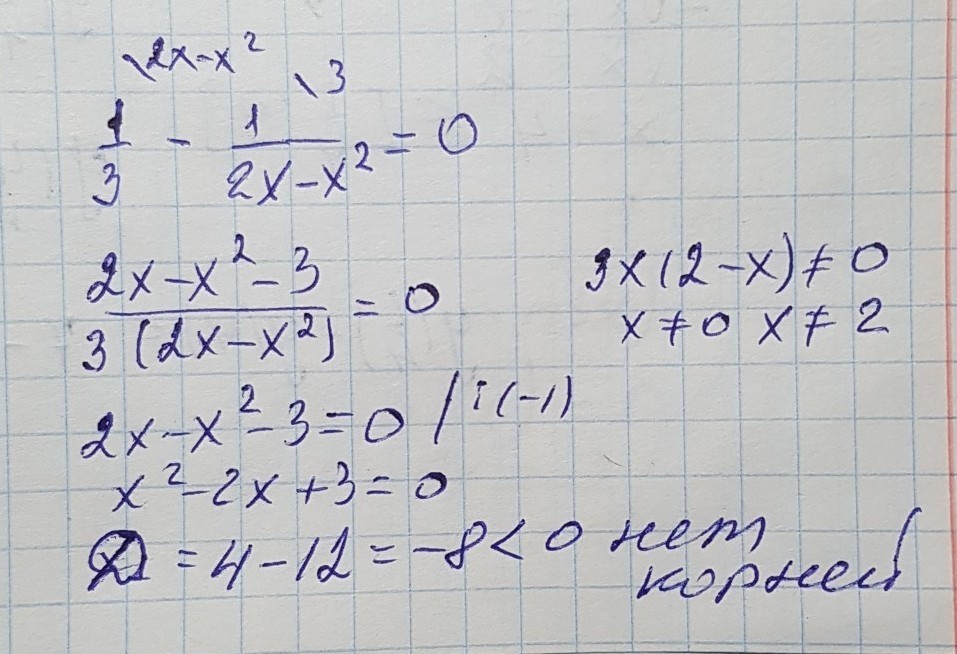 \2x-x² \3
1/3 - 1/(2x-x²) = 0
(2x-x²-3)/(3(2x-x²)) = 0
3x(2-x)≠0
x≠0 x≠2
2x-x²-3=0 /:(-1)
x²-2x+3=0
D=4-12=-8<0 нет
корней